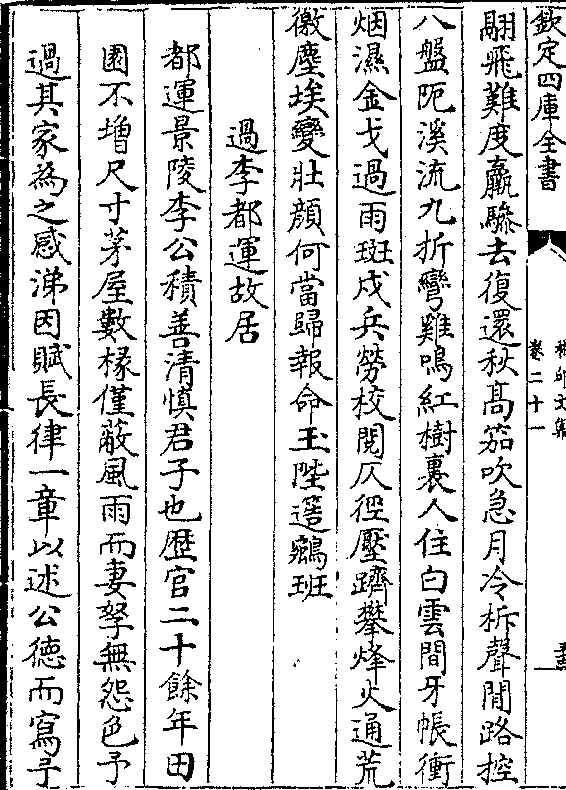 欽定四庫全書
卷二十一
翮飛難度羸驂去復還秋髙笳吹急月冷柝聲閒路控
八盤阨溪流九折彎雞鳴紅樹裏人住白雲間牙帳衝
烟濕金戈過雨斑戍兵勞校閲仄徑壓躋攀烽火通荒
徼塵埃變壯顔何當歸報命玉陛簉鵷班
過李都運故居
都運景陵李公積善清慎君子也歴官二十餘年田
園不增尺寸茅屋數椽僅蔽風雨而妻孥無怨色予
過其家為之感涕因賦長律一章以述公德而寫予